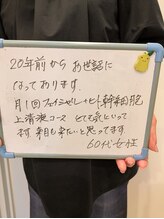 20年前から お世話に
なっております。
月1回フェイシャル+ヒト幹細胞
上清液コース とても気にいって
ます 来月も来たいと思ってます
60代女性